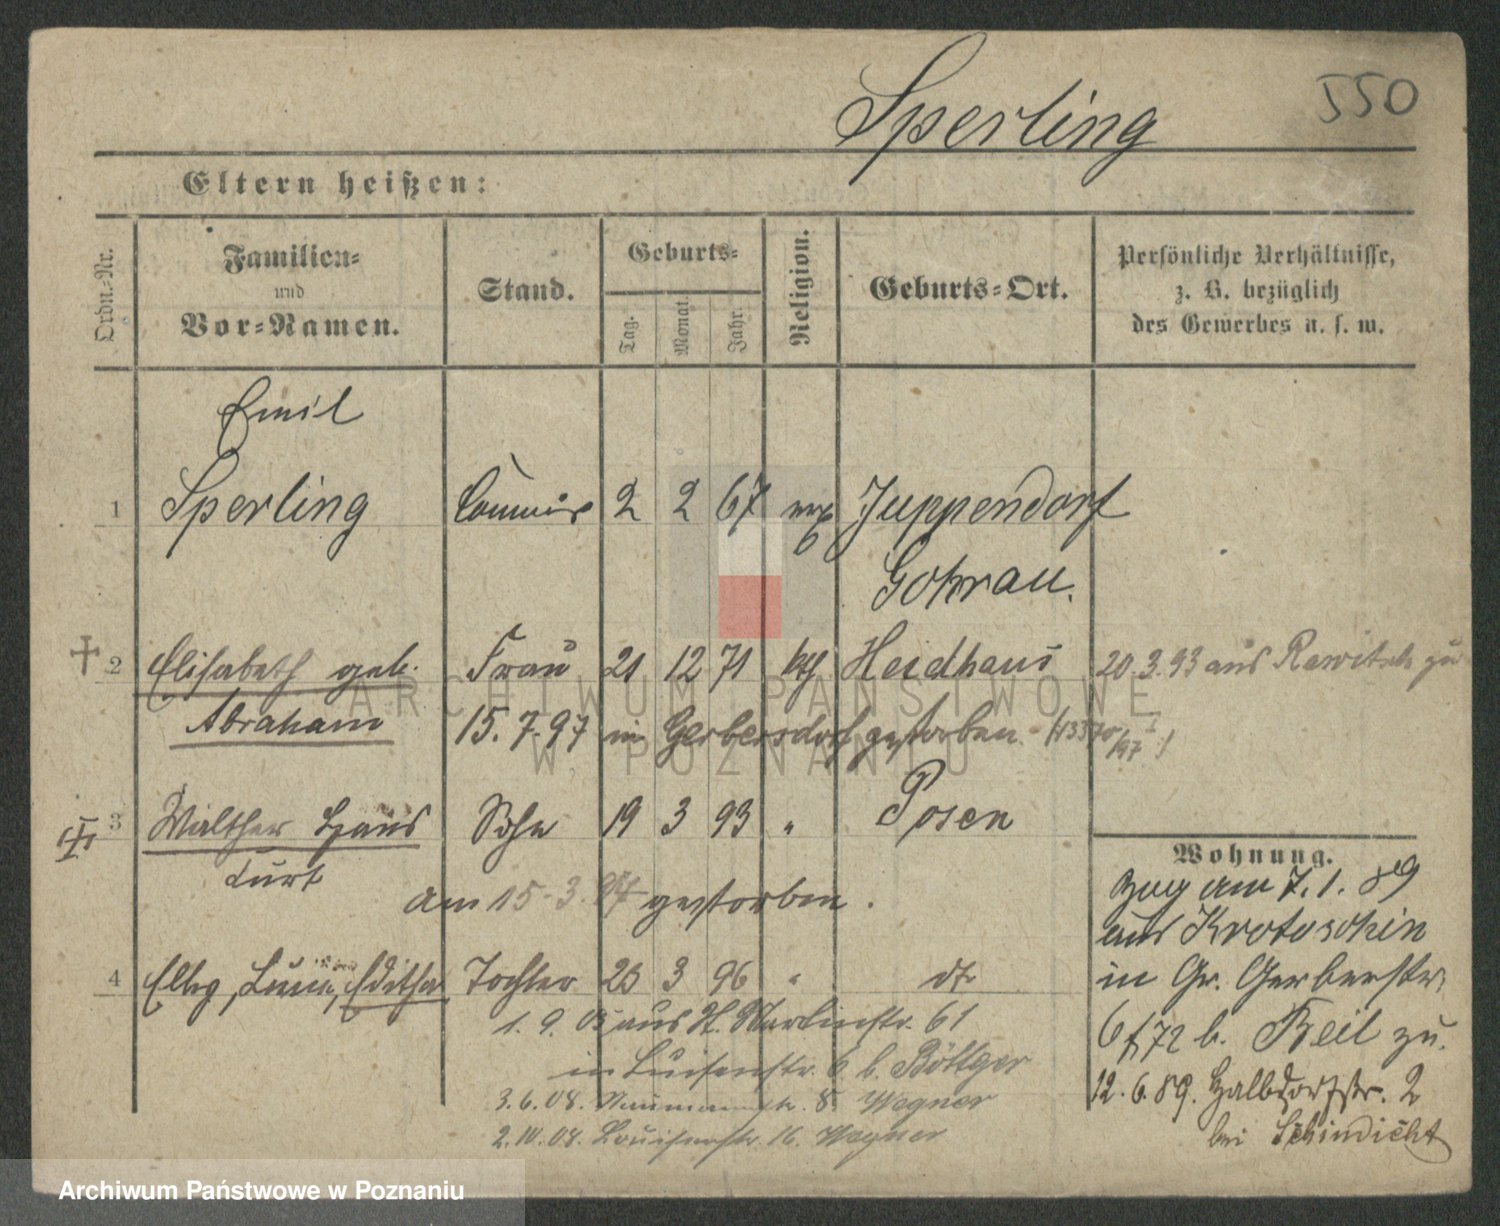 Sperling
550
Eltern heißen:
Ordn.-Nr.
Familien-
und
Vor-Namen.
Stand.
Geburts-
Tag.
Monat.
Jahr.
Religion.
Geburts-Ort.
Persönliche Verhältnisse,
z. B. bezüglich
des Gewerbes u. s. w.
Emil
1 Sperling Commis 2 2 67 Juppendorf
† 2 Elisabeth geb. Frau 21 12 71 kth Heidhaus 20.3.93 aus Rawitsch zu
Abraham 15.7.97 in Gerbersdorf gestorben
3 Walther Hans Sohn 19 3 93 " Posen
Curt
am 15.3.97 gestorben.
4 Elly, Editha Tochter 23 3 96 " dto
1.9.05 aus St. Martinstr. 61
in Luisenstr. 6 b. Böttger
3.6.08. Naumannstr. 8 Wegner
2.10.08. Louisenstr. 16. Wegner
Wohnung.
Zug am 7.1.89
aus Krotoschin
in Gr. Gerberstr.
b. Keil zu.
12.6.89. Halbdorfstr. 2
bei Schindicht
ARCHIWUM PAŃSTWOWE
W POZNANIU
Archiwum Państwowe w Poznaniu